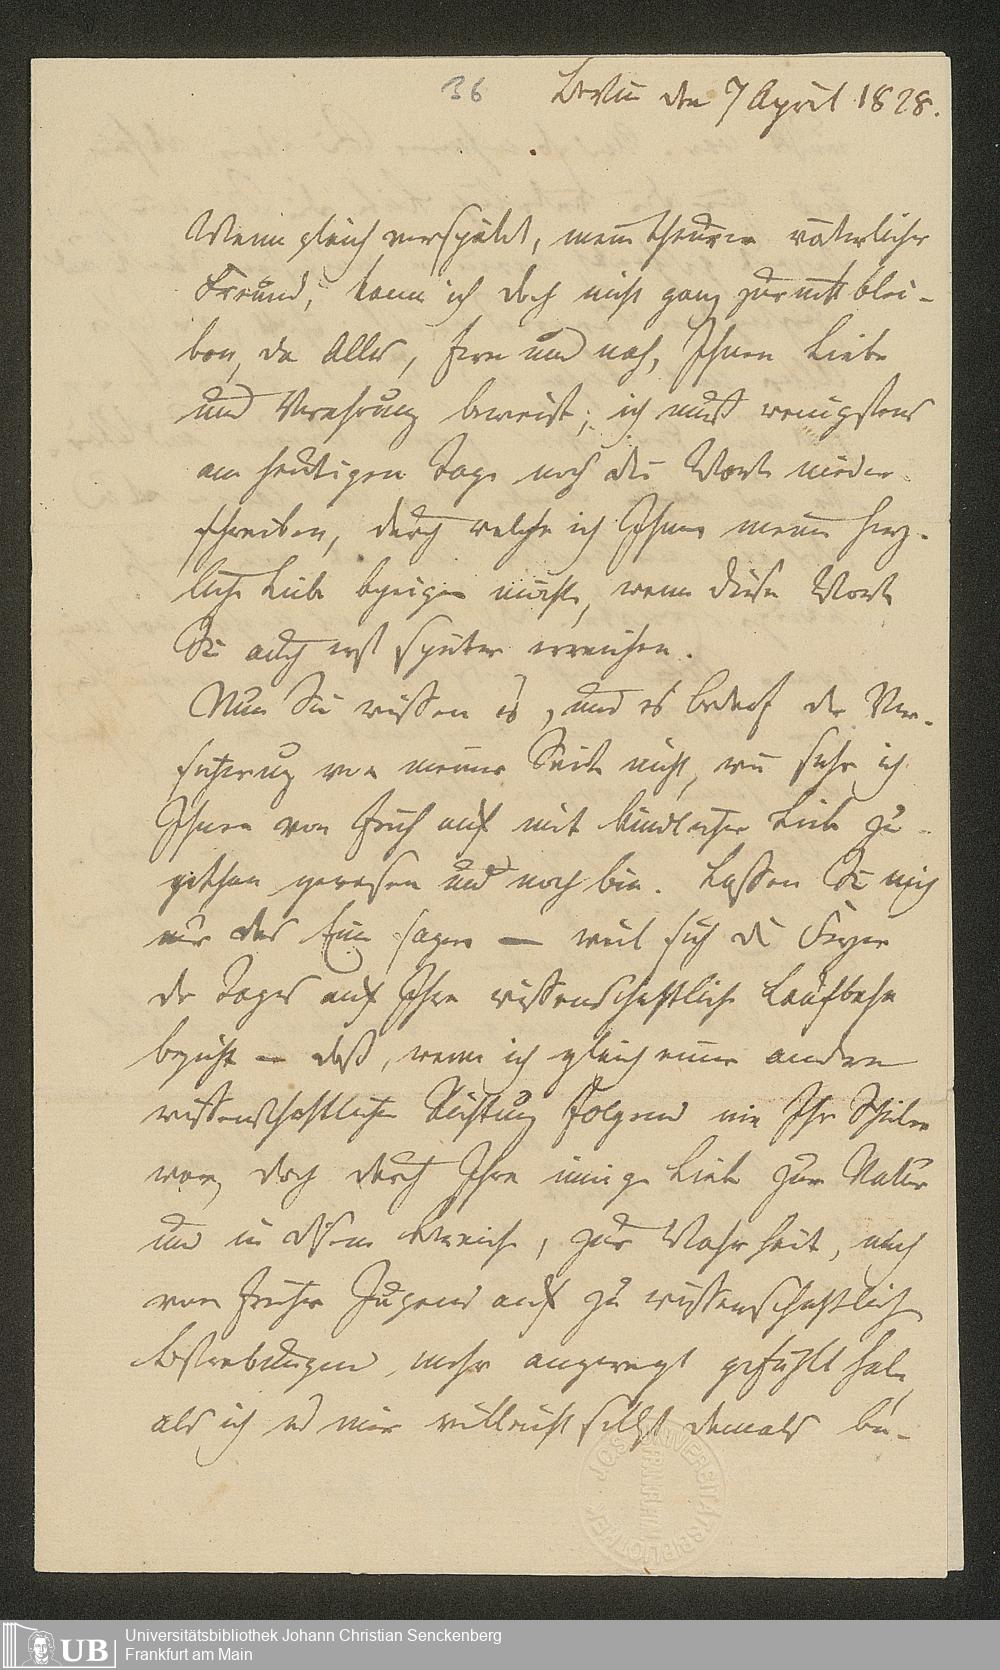 36
Berlin den 7 April 1828.
Wenn gleich verspätet, mein theurer väterlicher
Freund, kann ich doch nicht ganz zurück blei-
ben, da Alles, fern und nah, Ihnen Liebe
und Verehrung beweist; ich muß wenigstens
am heutigen Tage noch die Worte nieder
schreiben, durch welche ich Ihnen meine herz-
liche Liebe bezeigen möchte, wenn diese Worte
Sie auch erst später erreichen.
Nun Sie wissen es, und es bedarf der Ver-
sicherung von meiner Seite nicht, wie sehr ich
Ihnen von früh auf mit kindlicher Liebe zu-
gethan gewesen und noch bin. Lassen Sie mich
nur das Eine sagen — weil sich die Feyer
des Tages auf Ihre wissenschaftliche Laufbahn
bezieht — daß, wenn ich gleich einer andern
wissenschaftlichen Richtung folgend nie Ihr Schüler
war, doch durch Ihre innige Liebe zur Natur
und in diesem Bereiche, zur Wahrheit, mich
von früher Jugend auf zu wissenschaftlichen
Bestrebungen mehr angeregt gefühlt habe,
als ich es mir vielleicht selbst damals be-
UB
Universitätsbibliothek Johann Christian Senckenberg
Frankfurt am Main